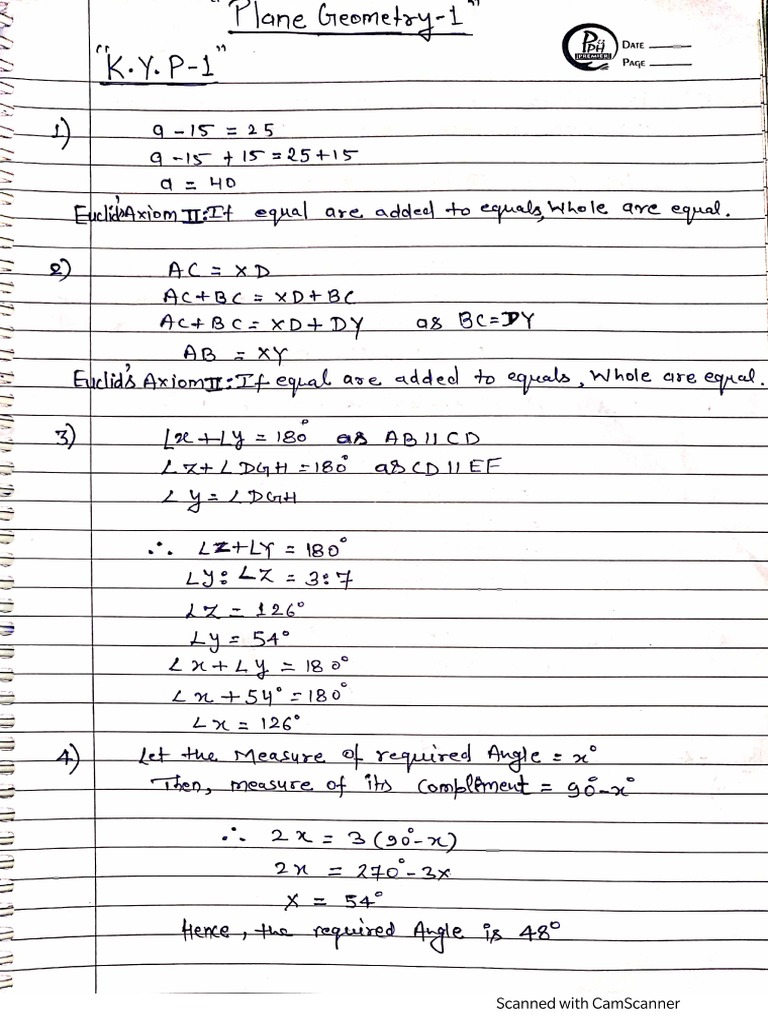 "Plane Geometry-1"
PPH
PREMIER
DATE
PAGE
"K.Y.P-1"
1) a - 15 = 25
a - 15 + 15 = 25+15
a = 40
Euclid's Axiom II: If equal are added to equals, Whole are equal.
2) AC = XD
AC+BC = XD+BC
AC+BC = XD+DY as BC=DY
AB = XY
Euclid's Axiom II: If equal are added to equals, Whole are equal.
3) ∠x+∠y = 180° as AB || CD
∠z+∠DGH = 180° as CD || EF
∠y = ∠DGH
∴ ∠z+∠Y = 180°
∠Y: ∠Z = 3:7
∠Z = 126°
∠y = 54°
∠x+∠y = 180°
∠x + 54° = 180°
∠x = 126°
4) Let the Measure of required Angle = x°
Then, measure of its complement = 90°-x°
∴ 2x = 3(90°-x)
2x = 270°-3x
x = 54°
Hence, the required Angle is 48°
Scanned with CamScanner